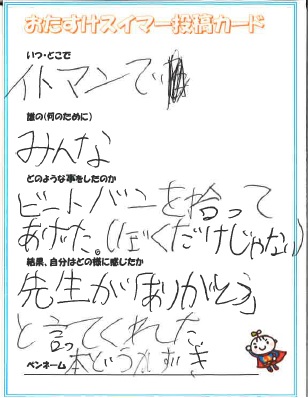 おたすけスイマー投稿カード
いつ・どこで
イトマンで
誰の(何のために)
みんな
どのような事をしたのか
ビートバンを拾って
あげた。(ぼくだけじゃない)
結果、自分はどの様に感じたか
先生が「ありがとう」
と言ってくれた
ペンネーム